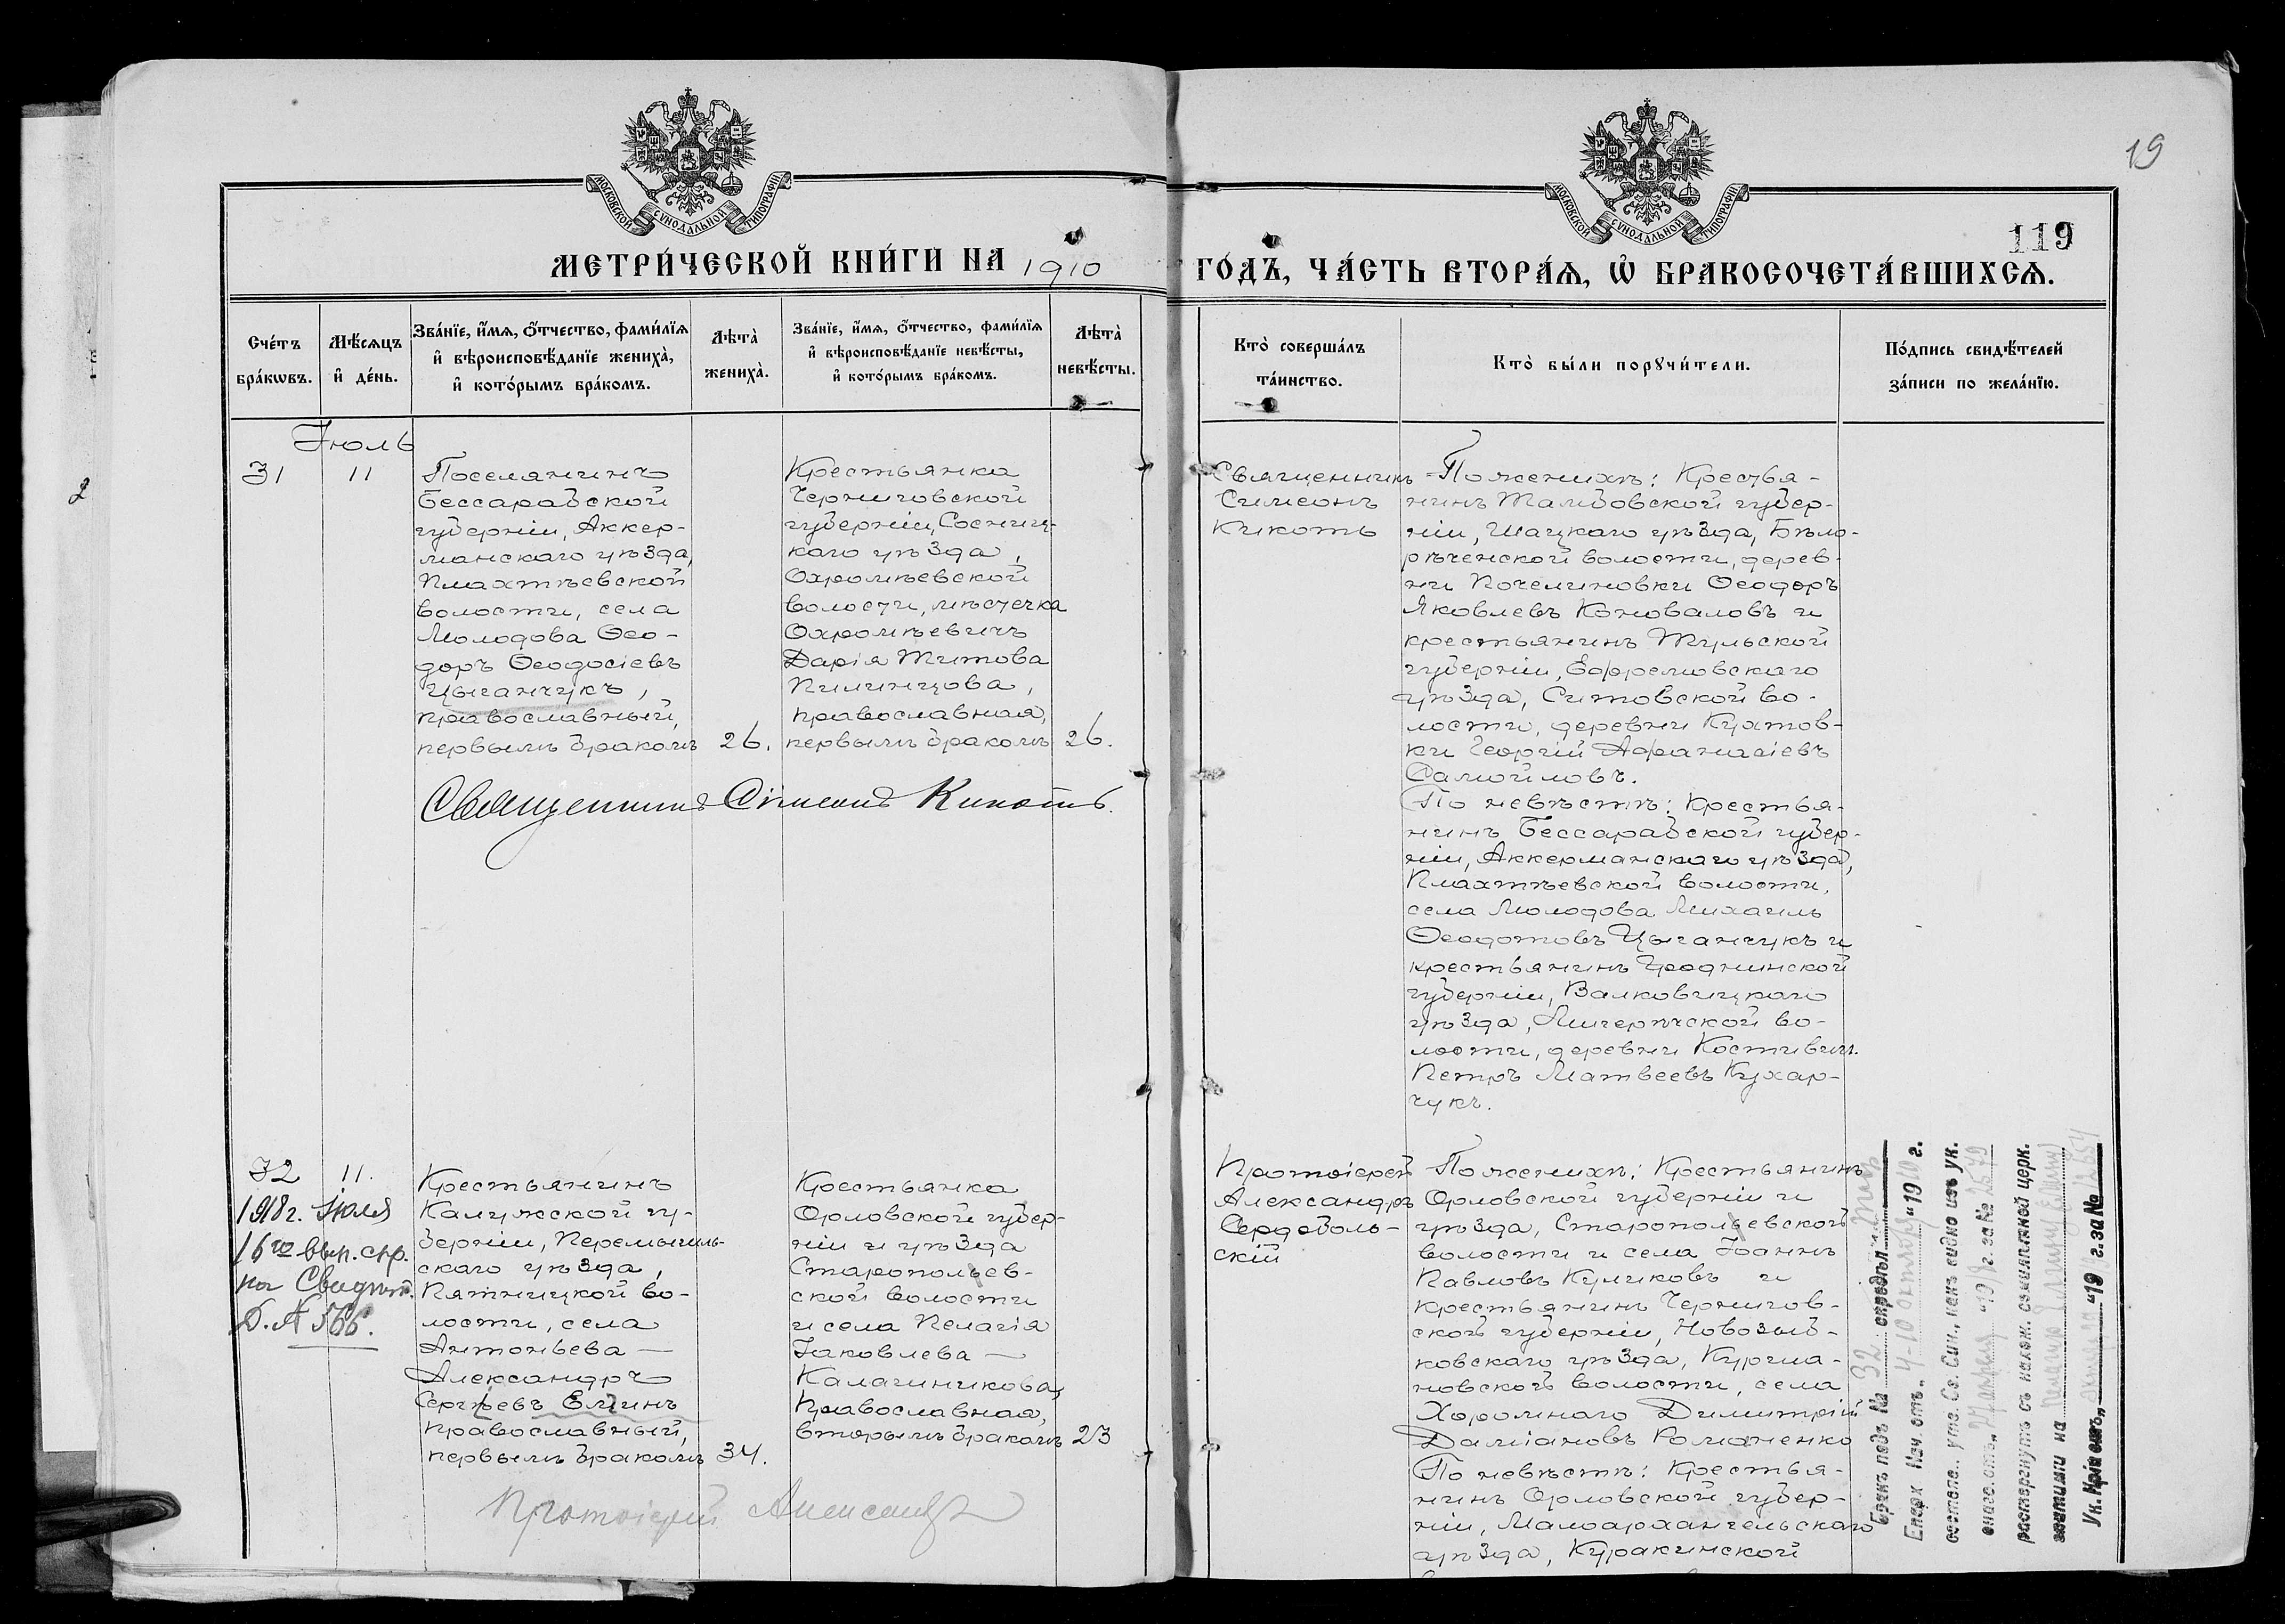 19
119
МОСКОВСКОЙ СУНОДАЛЬНОЙ ТИПОГРАФІИ
МОСКОВСКОЙ СУНОДАЛЬНОЙ ТИПОГРАФІИ
МЕТРИ́ЧЕСКОЙ КНИ́ГИ НА 1910 ГО́ДЪ, ЧА́СТЬ ВТОРА́Я, Ѽ БРАКОСОЧЕТА́ВШИХСЯ.
Сче́тъ бра́кѡвъ.
Мѣ́сяцъ и҆ де́нь.
Зва́нїе, и҆́мя, ѻ҆́тчество, фами́лїя и҆ вѣроисповѣ́данїе жениха̀, и҆ кото́рымъ бра́комъ.
Лѣта̀ жениха̀.
Зва́нїе, и҆́мя, ѻ҆́тчество, фами́лїя и҆ вѣроисповѣ́данїе невѣ́сты, и҆ кото́рымъ бра́комъ.
Лѣта̀ невѣ́сты.
Кто̀ соверша́лъ та́инство.
Кто̀ бы́ли порꙋчи́тели.
По́дпись свидѣ́телей за́писи по жела́нїю.
Іюль
31
11
Поселянинъ
Бессарабской
губерніи, Аккер-
манскаго уѣзда,
Плахтѣевской
волости, села
Молодова Ѳео-
доръ Ѳеодосіевъ
Цыганчукъ,
православный,
первымъ бракомъ
26.
Крестьянка
Черниговской
губерніи, Сосниц-
каго уѣзда,
Охромѣевской
волости, мѣстечка
Охромѣевичъ
Дарія Титова
Пилипцова,
православная,
первымъ бракомъ
26.
Священникъ Симеонъ Кикоть.
Священникъ
Симеонъ
Кикоть
По женихѣ: Крестья-
нинъ Тамбовской губер-
ніи, Шацкаго уѣзда, Бѣло-
рѣченской волости, дерев-
ни Почелиновки Ѳеодоръ
Яковлевъ Коноваловъ и
крестьянинъ Тульской
губерніи, Ефремовскаго
уѣзда, Ситовской во-
лости, деревни Кухтов-
ки Георгій Афанасіевъ
Самойловъ.
По невѣстѣ: Крестья-
нинъ Бессарабской губер-
ніи, Аккерманскаго уѣзда,
Плахтѣевской волости,
села Молодова Михаилъ
Ѳеодотовъ Цыганчукъ и
крестьянинъ Гродненской
губерніи, Валковицкаго
уѣзда, во-
лости, деревни Костивичъ
Петръ Матвеевъ Кухар-
чукъ.
32
11.
1918 г. Іюля
16го вып. спр.
на Свидѣт.
Д. № 566.
Крестьянинъ
Калужской гу-
берніи, Перемышль-
скаго уѣзда,
Пятницкой во-
лости, села
Антоньева —
Александръ
Сергѣевъ Елинъ
православный,
первымъ бракомъ
34.
Крестьянка
Орловской губер-
ніи и уѣзда
Старопольев-
ской волости
и села Пелагія
Іаковлева —
Калашникова,
Православная,
вторымъ бракомъ
23
Протоіерей Александръ
Протоіерей
Александръ
Сердоболь-
скій
По женихѣ: Крестьянинъ
Орловской губерніи и
уѣзда, Старопольевской
волости и села Іоаннъ
Павловъ Куликовъ и
крестьянинъ Чернигов-
ской губерніи, Новозыб-
ковскаго уѣзда, Курша-
новской волости, села
Хоромнаго Димитрій
Даміановъ Романенко
По невѣстѣ: Крестья-
нинъ Орловской губер-
ніи, Малоархангельскаго
уѣзда, Куракинской
Бракъ подъ № 32 опредѣл.
Епарх. Нач. отъ „ 4-10 октября “ 1910 г.
утв. Св. Син., какъ видно изъ ук.
онаго отъ „ “ 191 г. за № 1579
расторгнутъ съ налож. семилѣтней церк.
эпитиміи на
Ук. отъ „ “ 191 г. за № 12554